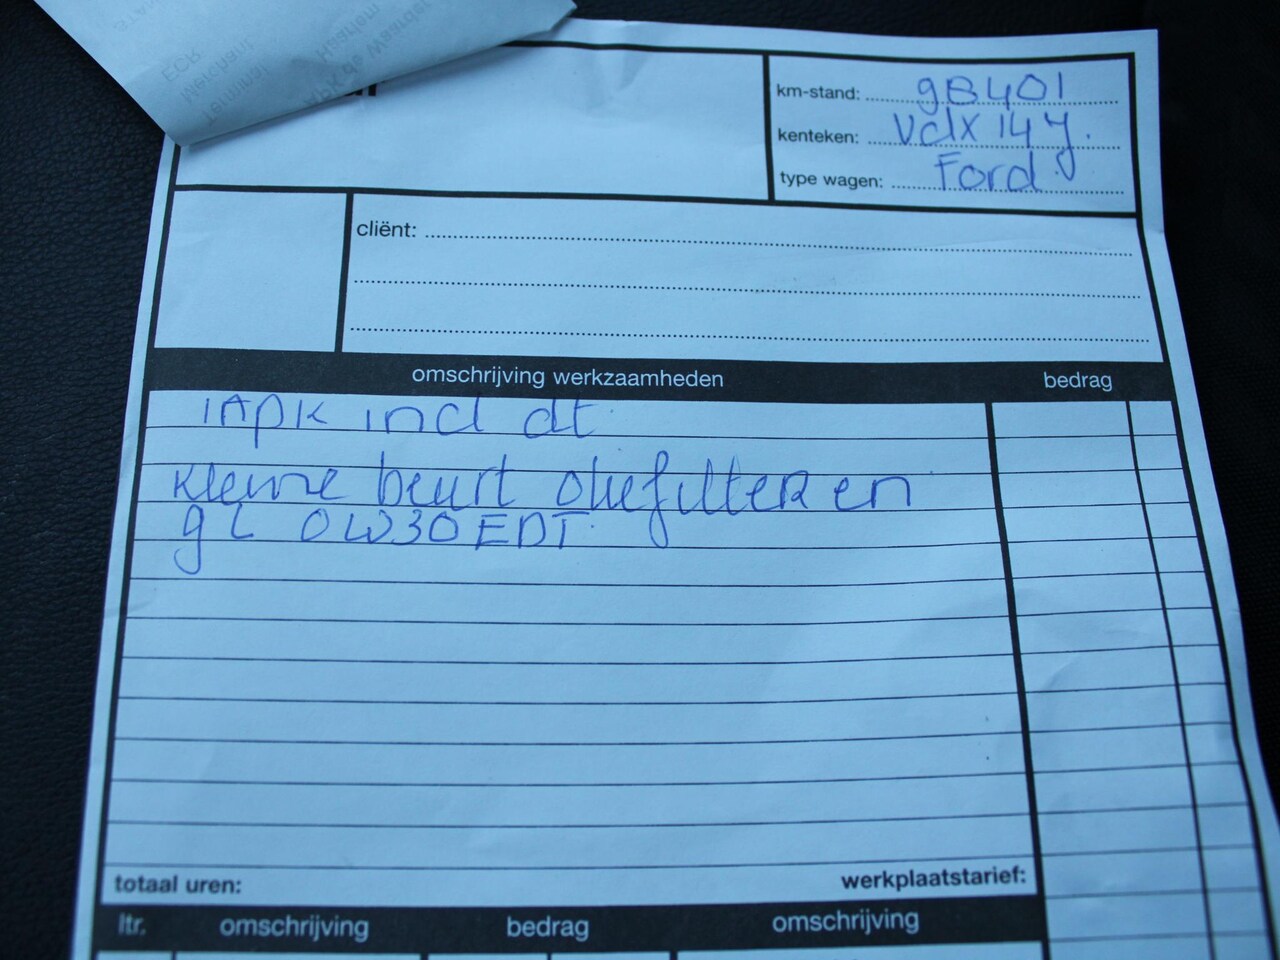 ECR
Merchant
Terminal
Haarlem
APK de Waarder
km-stand: 98401
kenteken: VdX 14 y.
type wagen: Ford
cliënt:
omschrijving werkzaamheden bedrag
1 APK incl dt
Kleine beurt oliefilter en
9 L 0W30 EDT.
totaal uren: werkplaatstarief:
ltr. omschrijving bedrag omschrijving